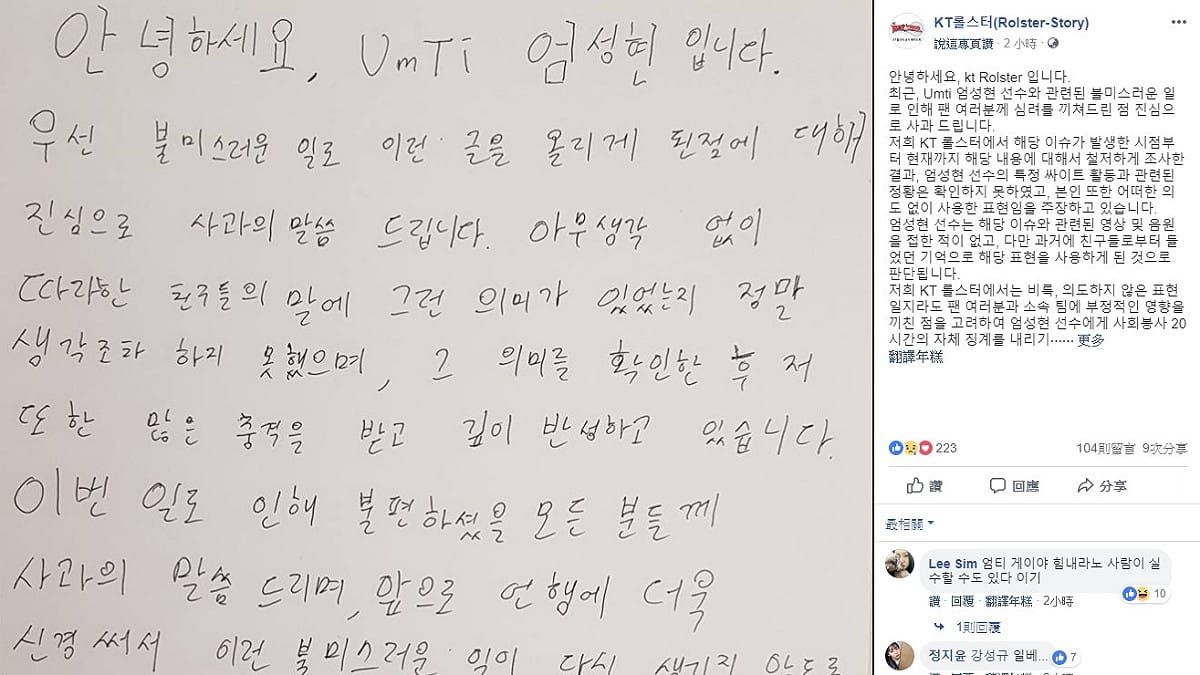 안녕하세요, UmTi 엄성현 입니다.
우선 불미스러운 일로 이런 글을 올리게 된점에 대해
진심으로 사과의 말씀 드립니다. 아무생각 없이
따라한 친구들의 말에 그런 의미가 있었는지 정말
생각조차 하지 못했으며, 그 의미를 확인한 후 저
또한 많은 충격을 받고 깊이 반성하고 있습니다.
이번 일로 인해 불편하셨을 모든 분들께
사과의 말씀 드리며, 앞으로 언행에 더욱
신경써서 이런 불미스러운 일이 다시 생기지 않도록
KT롤스터(Rolster-Story)
說這專頁讚 · 2 小時 ·
안녕하세요, kt Rolster 입니다.
최근, Umti 엄성현 선수와 관련된 불미스러운 일
로 인해 팬 여러분께 심려를 끼쳐드린 점 진심으
로 사과 드립니다.
저희 KT 롤스터에서 해당 이슈가 발생한 시점부
터 현재까지 해당 내용에 대해서 철저하게 조사한
결과, 엄성현 선수의 특정 싸이트 활동과 관련된
정황은 확인하지 못하였고, 본인 또한 어떠한 의
도 없이 사용한 표현임을 주장하고 있습니다.
엄성현 선수는 해당 이슈와 관련된 영상 및 음원
을 접한 적이 없고, 다만 과거에 친구들로부터 들
었던 기억으로 해당 표현을 사용하게 된 것으로
판단됩니다.
저희 KT 롤스터에서는 비록, 의도하지 않은 표현
일지라도 팬 여러분과 소속 팀에 부정적인 영향을
끼친 점을 고려하여 엄성현 선수에게 사회봉사 20
시간의 자체 징계를 내리기...... 更多
翻譯年糕
223 104則留言 9次分享
讚 回應 分享
最相關
Lee Sim 엄티 게이야 힘내라노 사람이 실
수할 수도 있다 이기
讚 · 回覆 · 翻譯年糕 · 2小時 10
1則回覆
정지윤 강성규 일베... 7